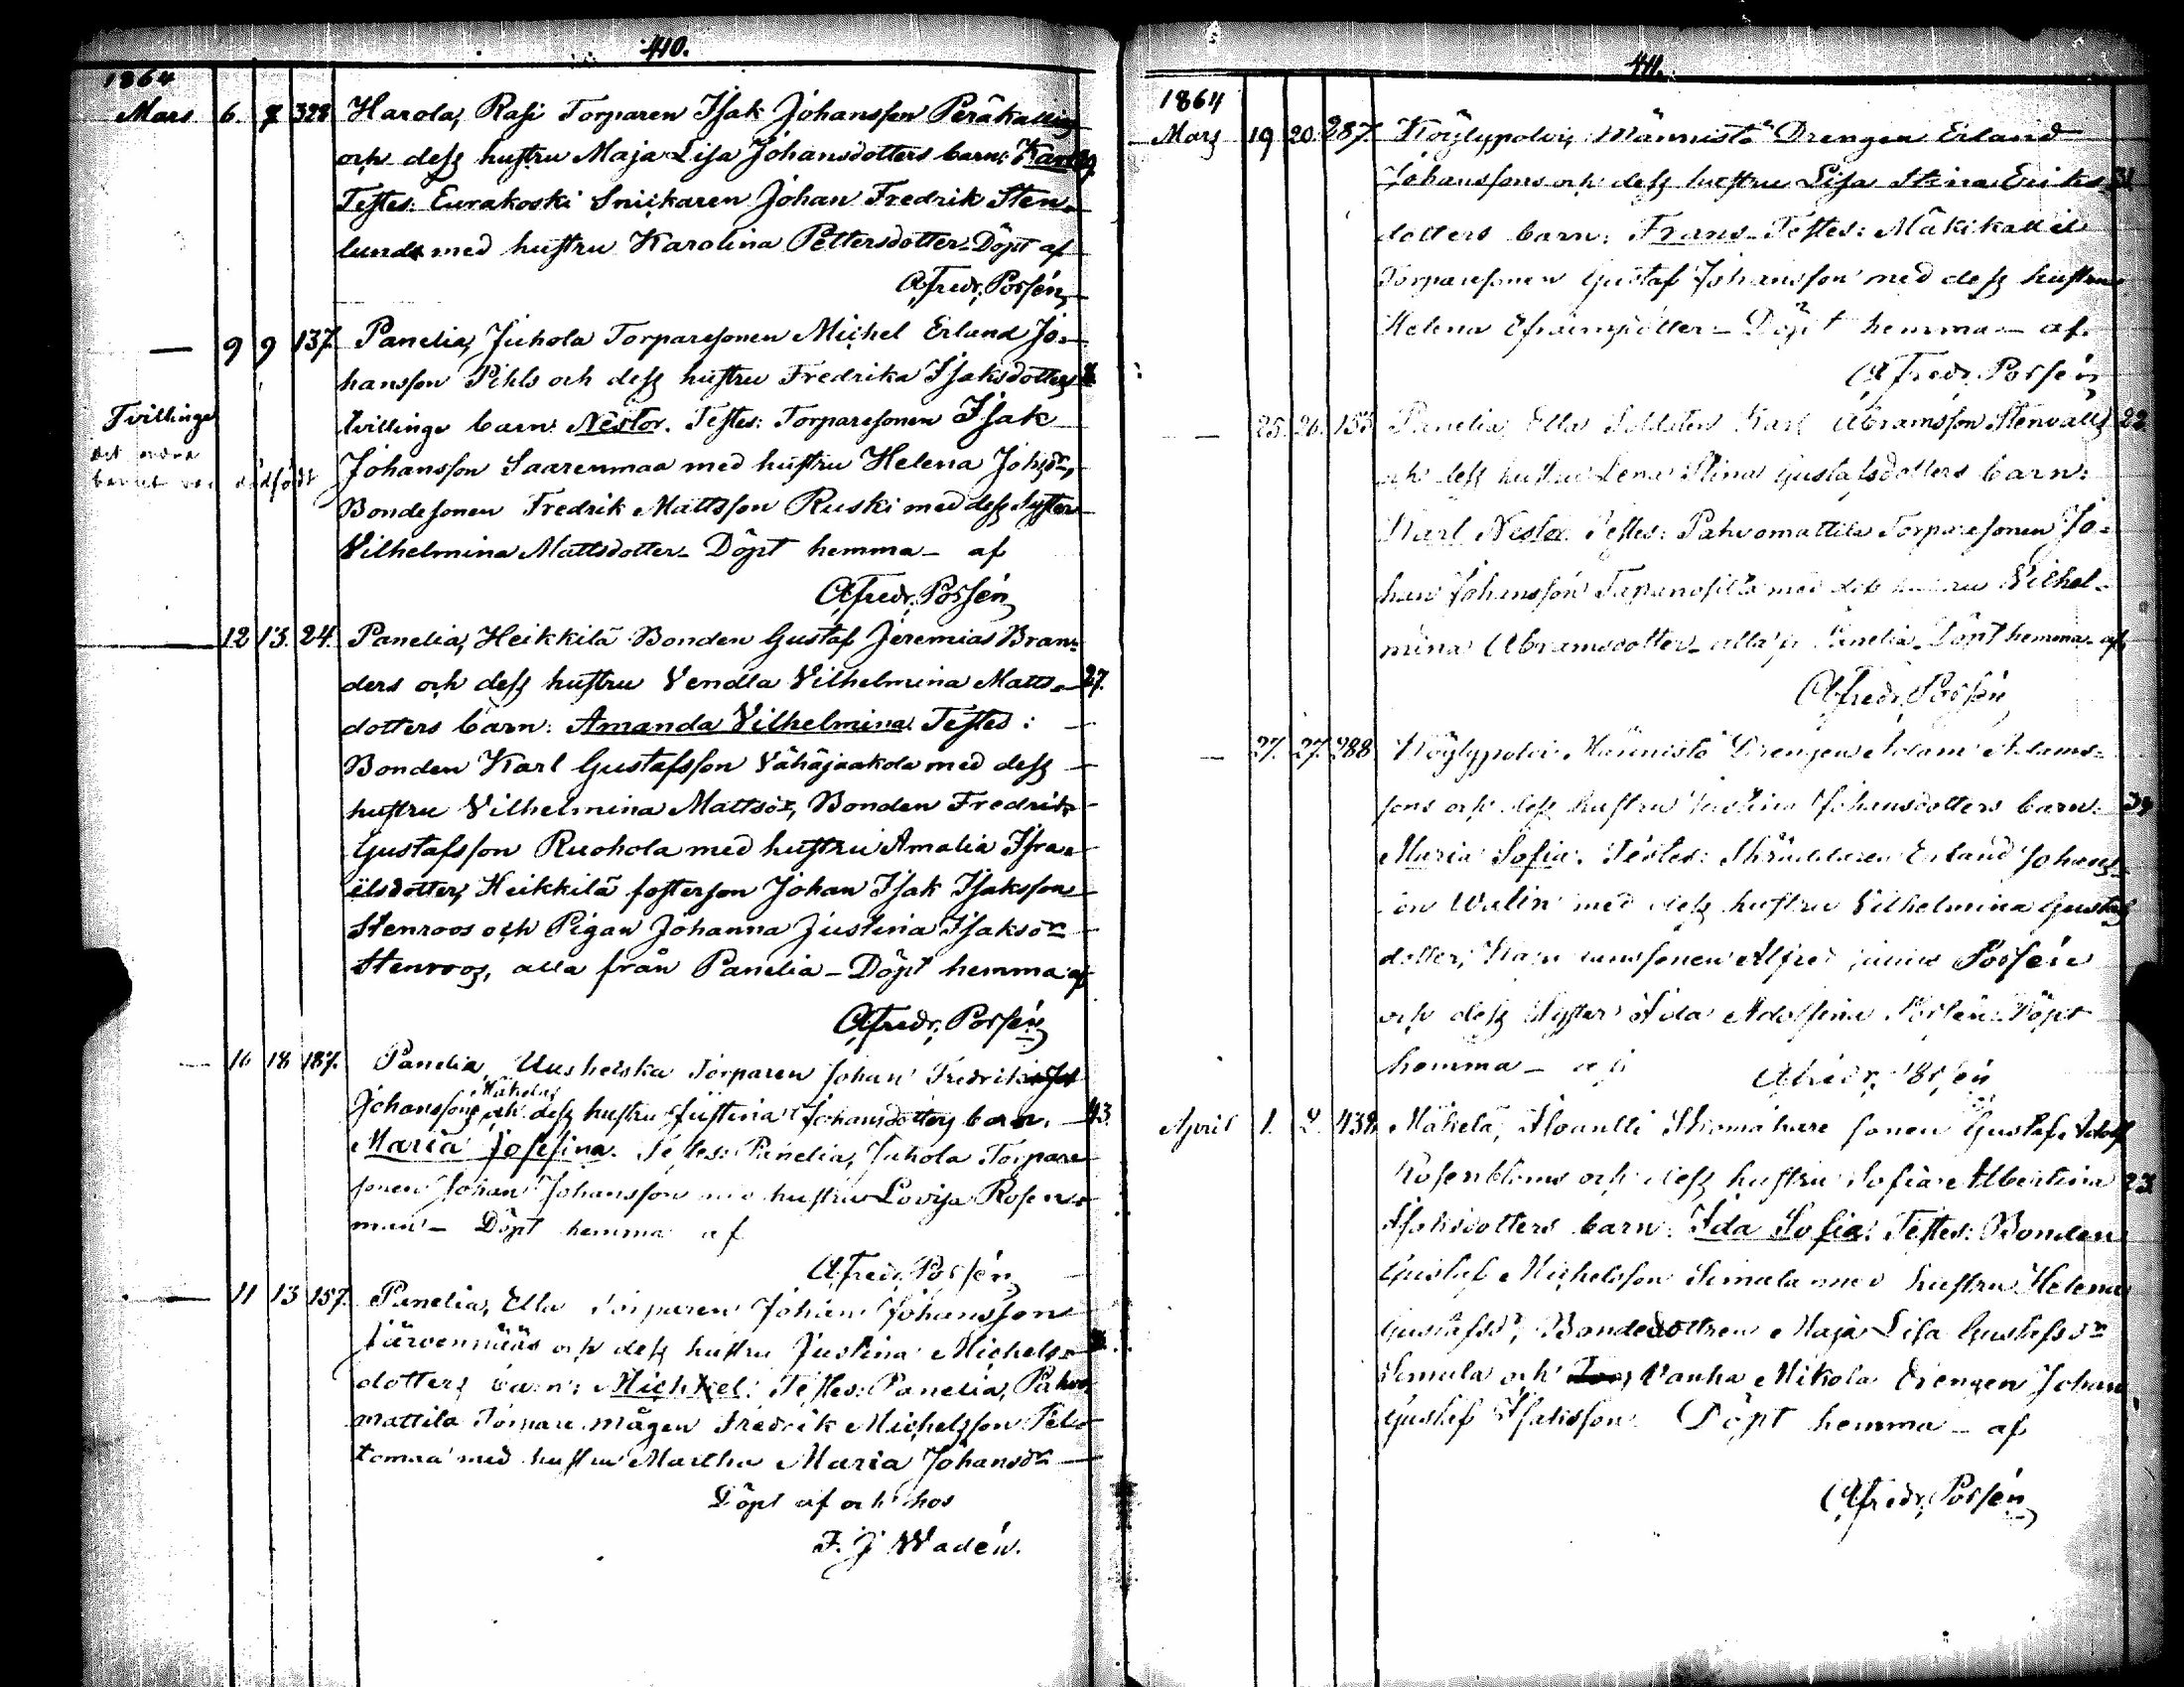 410.
1864
Mars 6. 7. 328 Harola, Rasi Torparen Isak Johansson Peräkallios
och dess hustru Maja Lisa Johansdotters barn: Karl
Testes: Eurakoski Snickaren Johan Fredrik Sten-
lund med hustru Karolina Pettersdotter_ Döpt af
Afredr. Porsén
— 9 9 137. Panelia, Juhola Torparesonen Michel Erland Jo-
hansson Pihls och dess hustru Fredrika Isaksdotters
Tvillinge
tvillinge barn: Nestor. Testes: Torparesonen Isak
det andra
barnet var dödfödt
Johansson Saarenmaa med hustru Helena Johsdr,
Bondesonen Fredrik Mattsson Ruski med dess Syster
Vilhelmina Mattsdotter_ Döpt hemma_ af
Afredr. Porsén
— 12 13. 24. Panelia, Heikkilä Bonden Gustaf Jeremias Bran-
ders och dess hustru Vendla Vilhelmina Matts- 27.
dotters barn: Amanda Vilhelmina. Testes:
Bonden Karl Gustafsson Vähäjaakola med dess
hustru Vilhelmina Mattsdr, Bonden Fredrik
Gustafsson Ruohola med hustru Amalia Isra-
ëlsdotter, Heikkilä fosterson Johan Isak Isaksson
Stenroos och Pigan Johanna Justina Isaksdr
Stenroos, alla från Panelia_ Döpt hemma af
Afredr. Porsén
— 16 18 187. Panelia, Torparen Johan Fredrik
Mäkelas
Johanssons och dess hustru Justina Johansdotters barn. 43.
Maria Josefina. Testes: Panelia, Juhola Torpare
sonen Johan Johansson med hustru Lovisa Rosen-
man_ Döpt hemma af
Afredr. Porsén
— 11 13 157. Panelia, Ella Torparen Johan Johansson
Järvenpääs och dess hustru Justina Michels-
dotters barn: Michael. Testes: Panelia, Pahvo
mattila Torpare mågen Fredrik Michelsson Pel-
tomaa med hustru Martha Maria Johansdr
Döpt af och hos
F. J Wadén.
411.
1864
Mars 19 20. 287. Köylypolvi, Männistö Drengen Erland
Johanssons och dess hustru Lisa Stina Eriks- 31.
dotters barn: Frans_ Testes: Mäkikallil
Torparesonen Gustaf Johansson med dess hustru
Helena Efraimsdotter_ Döpt hemma_ af.
Afredr. Porsén
— 25. 26. 155 Panelia Ella Soldaten Karl Abramsson Stenvalls 22.
och dess hustru Lena Stina Gustafsdotters barn:
Karl Nestor. Testes: Pahvomattila Torparesonen Jo-
han Johansson med dess hustru Vilhel-
mina Abramsdotter_ alla fr Panelia_ Döpt hemma_ af
Afredr. Porsén
— 27. 27. 288 Köylypolvi Männistö Drengen Adam Adams-
sons och dess hustru Justina Johansdotters barn: 34
Maria Sofia. Testes: Skräddaren Erland Johans-
son Walin med dess hustru Vilhelmina Gustafs
dotter, Alfred Julius Porsén
och dess Syster Ida Adolfina Porsén. Döpt
hemma_ af
Afredr. Porsén
April 1. 2. 432. Mäkelä, Skomakare sonen Gustaf Adolf
Rosenbloms och dess hustru Sofia Albertina 23
Isaksdotters barn: Ida Sofia. Testes: Bonden
Gustaf Michelsson Simula med hustru Helena
Gustafsdr, Bondedottren Maja Lisa Gustafsdr
Simula och Vanha Mikola Drengen Johan
Gustaf Isaksson. Döpt hemma_ af
Afredr. Porsén